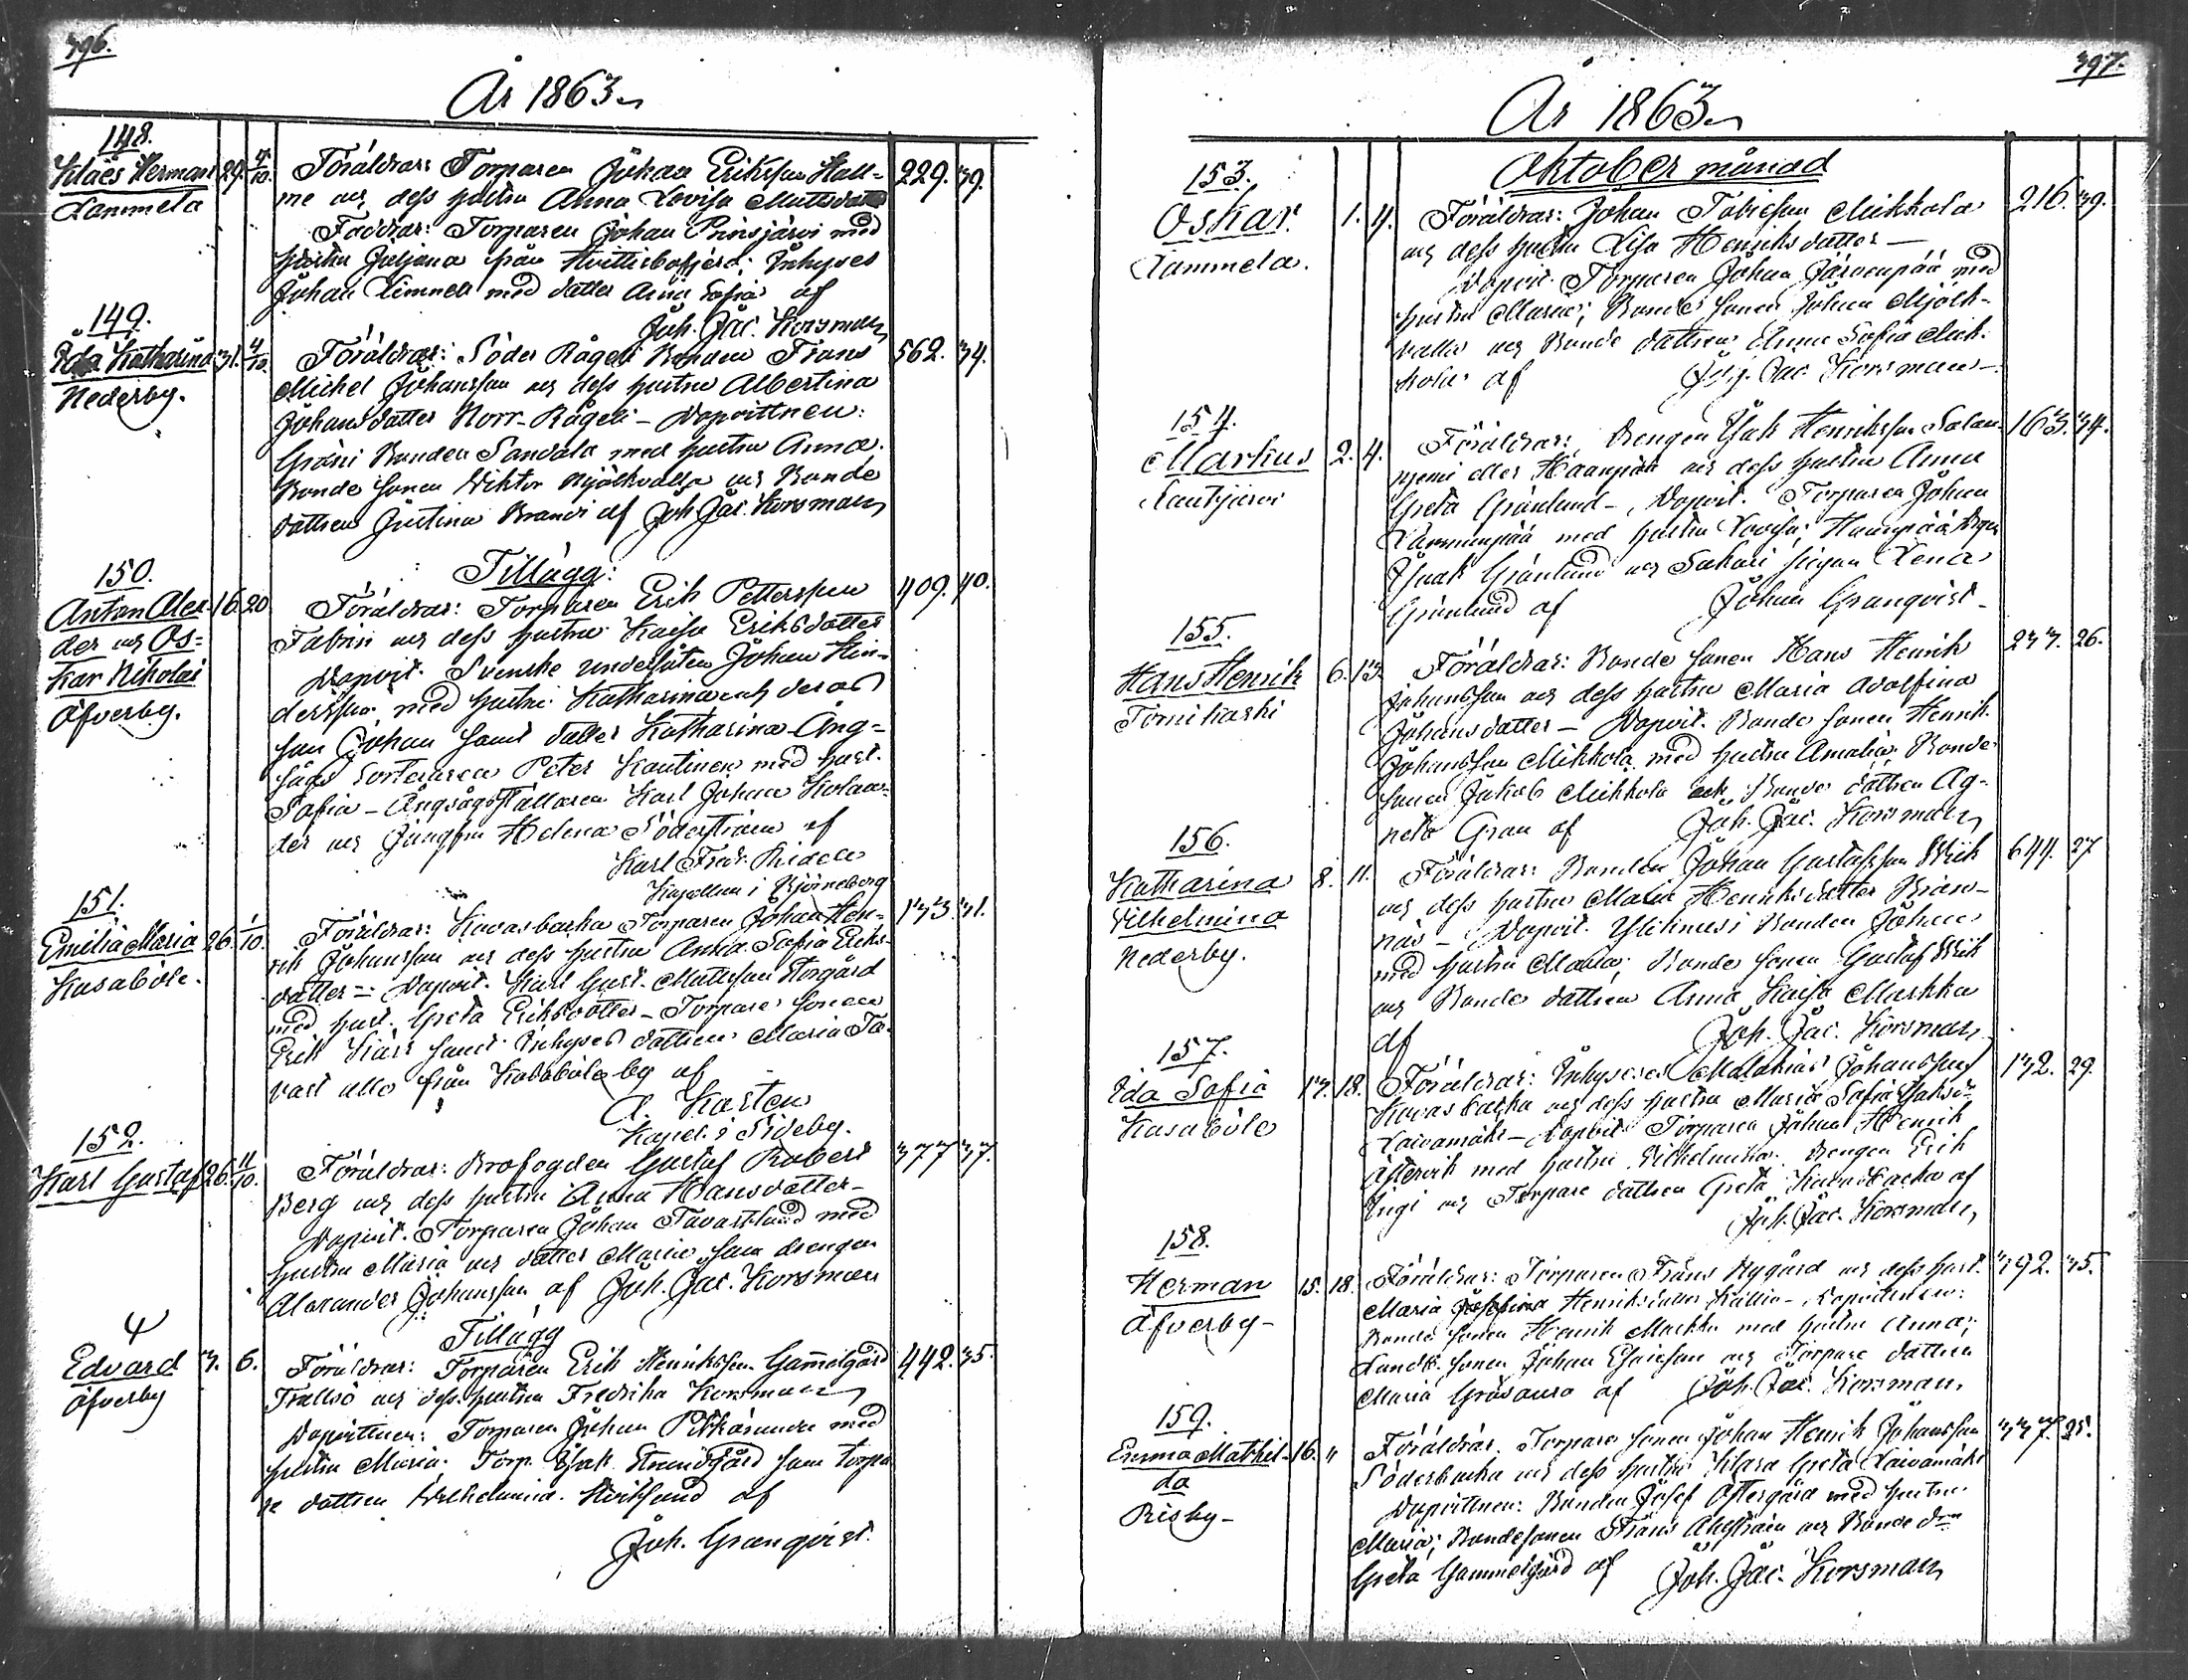 396.
År 1863
148.
Klaës Herman 29. 4/10.
Lammela
Föräldrar: Torparen Johan Eriksson Hall- 229. 39.
me och dess hustru Anna Lovisa Mattsdatter
Faddrar: Torparen Johan Prinsjärvi med
hustru Juljana från Hvittisbofjerd; Inhyses
Johan Limnell med datter Anna Sofia af
Joh. Jac. Korsman
149.
Ida Katharina 31. 4/10.
Nederby.
Föräldrar: Söder Rågeli Bonden Frans 562. 34.
Michel Johansson och dess hustru Albertina
Johansdatter Norr-Rågeli - Dopvittnen:
Gröni Bonden Sandala med hustru Anna.
Bonde sonen Viktor Mjölkvalla och Bonde
dattren Justina Brandi af Joh. Jac. Korsman
Tillägg:
150.
Anton Alex. 16. 20
der och Os-
kar Nikolai
Öfverby.
Föräldrar: Torparen Erik Pettersson 409. 40.
Fabrin och dess hustru Kaisa Eriksdatter
Dopvit. Svenske undersåten Johan Hin-
dersson med hustru Katharina och deras
son Johan samt datter Katharina Ång-
sågs Sorteraren Peter Kautinen med hust.
Sofia - Ångsågs Ställaren Karl Johan Kolan-
der och Jungfru Helena Söderström af
Karl Fredr.
Kapellan i Björneborg
151.
Emilia Maria 26. 1/10.
Kasaböle.
Föräldrar: Kuvasbacka Torparen Johan Hen- 133. 31.
rik Johansson och dess hustru Anna Sofia Eriks-
datter - Dopvit. Karl Gust. Mattsson Storgård
med hust. Greta Eriksdatter - Torpare sonen
Erik Kärr samt Inhyses dattren Maria Ta-
vast alla från Kasaböle by af
A. Karten
Kapel. i Sideby.
152.
Karl Gustaf 26. 11/10.
Föräldrar: Brofogden Gustaf Robert 377 37.
Berg och dess hustru Anna Hansdatter-
Dopvit. Torparen Johan Tavastland med
hustru Maria och datter Maria samt drengen
Alexander Johansson af Joh. Jac. Korsman
Tillägg
4
Edvard 3. 6.
Öfverby
Föräldrar: Torparen Erik Henriksson Gammelgård 442. 35.
Trallsö och dess hustru Fredrika Korsman
Dopvittnen: Torparen Johan Pitkäranda med
hustru Maria. Torp. Isak Strandgård samt torpa
re dattren Wilhelmina af
Joh. Granqvist.
397.
År 1863
Oktober månad
153.
Oskar 1. 4.
Lammela.
Föräldrar: Johan Tobiesson Mikkola 216. 39.
och dess hustru Lisa Henriksdatter -
Dopvit. Torparen Johan Järvenpää med
hustru Maria; Bonde sonen Johan Mjölk-
valla och Bonde dattren Anna Sofia Mik-
kola af Joh. Jac. Korsman
154.
Markus 2. 4.
Lautjärvi
Föräldrar: Drengen Isak Henriksson Salan- 163. 34.
njemi eller Haanpää och dess hustru Anna
Greta Grönlund - Dopvit. Torparen Johan
med hustru Lovisa; Haanpää
Isaak Grönlund och Sakari pigan Lena
Grönlund af Johan Granqvist
155.
Hans Henrik 6. 13.
Tömikoski
Föräldrar: Bonde sonen Hans Henrik 233. 26.
Johansson och dess hustru Maria Adolfina
Johansdatter - Dopvit. Bonde sonen Henrik
Johansson Mikkola med hustru Amalia; Bonde
sonen Jakob Mikkola och Bonde dattren Ag-
neta Gran af Joh. Jac. Korsman
156.
Katharina 8. 11.
Vilhelmina
Nederby.
Föräldrar: Bonden Johan Gustafsson Wiik 644. 27
och dess hustru Maria Henriksdatter Björn-
näs - Dopvit. Bonden Johan
med hustru Maria; Bonde sonen Gustaf Wiik
och Bonde dattren Anna Kaisa Markka
af Joh. Jac. Korsman
157.
Ida Sofia 13. 18.
Kasaböle
Föräldrar: Inhyseses Malakias Johansson 132. 29.
Kuvasbacka och dess hustru Maria Sofia Isaksd.
Laivamäki - Dopvit. Torparen Johan Henrik
med hustru Vilhelmina. Drengen Erik
och Torpare dattren Greta Kuvasbacka af
Joh. Jac. Korsman
158.
Herman 15. 18.
Öfverby-
Föräldrar: Torparen Frans Nygård och dess hust. 392. 35.
Maria Josefina Henriksdatter Kallio - Dopvittnen:
Bonde sonen Henrik Markku med hustru Anna;
Landb. sonen Johan Esaiesson och Torpare dattren
Maria af Joh. Jac. Korsman
159.
Emma Mathil- 16. "
da
Risby-
Föräldrar. Torpare sonen Johan Henrik Johansson 337. 25.
Söderbacka och dess hustru Klara Greta Laivamäki
Dopvittnen: Bonden Josef Östergård med hustru
Maria; Bondesonen Frans Ahlström och Bonde d:n
Greta Gammelgård af Joh. Jac. Korsman